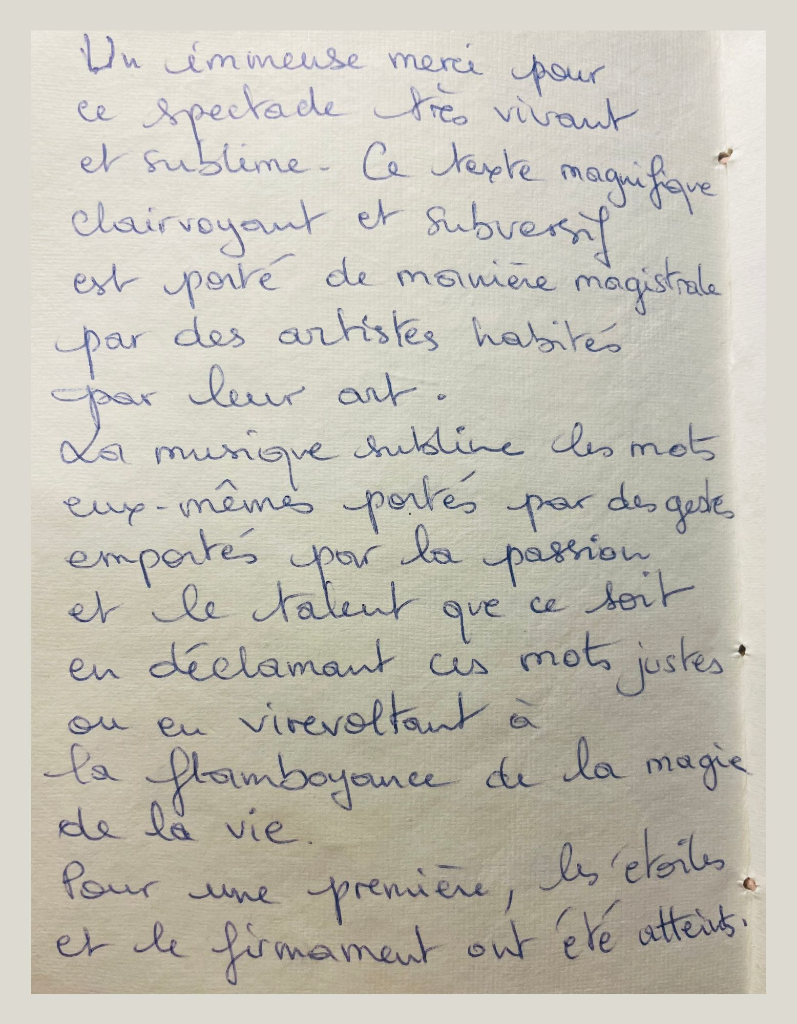 Un immense merci pour
ce spectacle très vivant
et sublime. Ce texte magnifique
clairvoyant et subversif
est porté de manière magistrale
par des artistes habités
par leur art.
La musique sublime les mots
eux-mêmes portés par des gestes
emportés par la passion
et le talent que ce soit
en déclamant ces mots justes
ou en virevoltant à
la flamboyance de la magie
de la vie.
Pour une première, les étoiles
et le firmament ont été atteints.